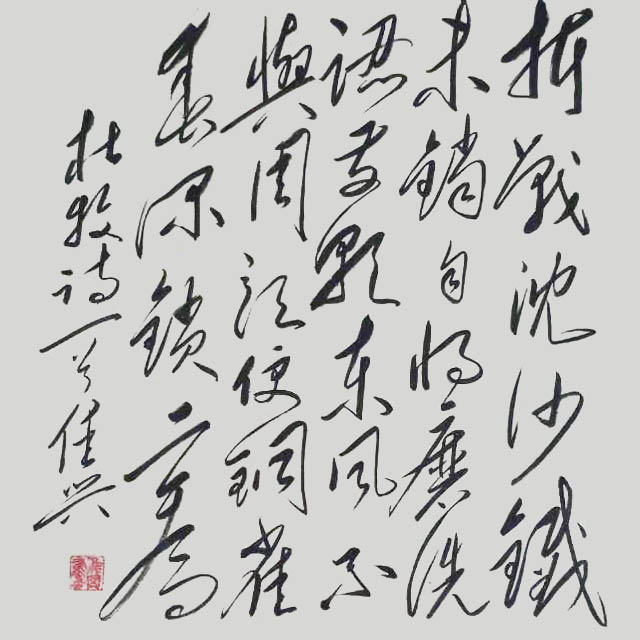 折戟沈沙鐵
未銷自將磨洗
認前朝東風不
與周郎便銅雀
春深鎖二喬
杜牧诗一首佳兴